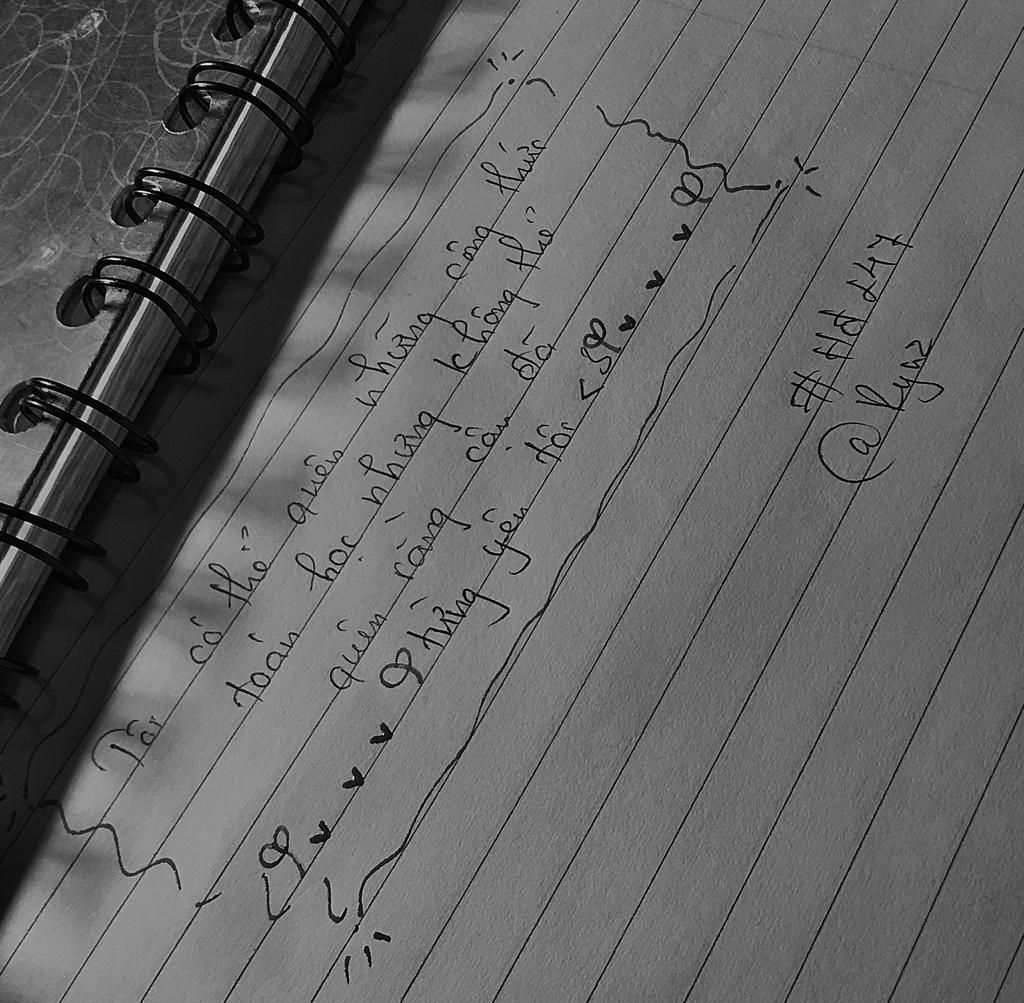 Tôi có thể quên những công thức
toán học nhưng không thể
quên rằng cậu đã
từng yêu tôi <3
# Hd 247
@ Kyuz